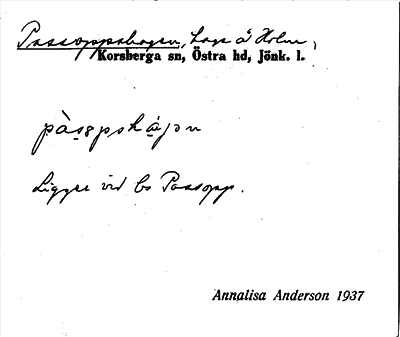 Passoppshagen, hage å Holm,
Korsberga sn, Östra hd, Jönk. l.
pàsɛpshágən
Ligger vid bs Passopp.
Annalisa Anderson 1937